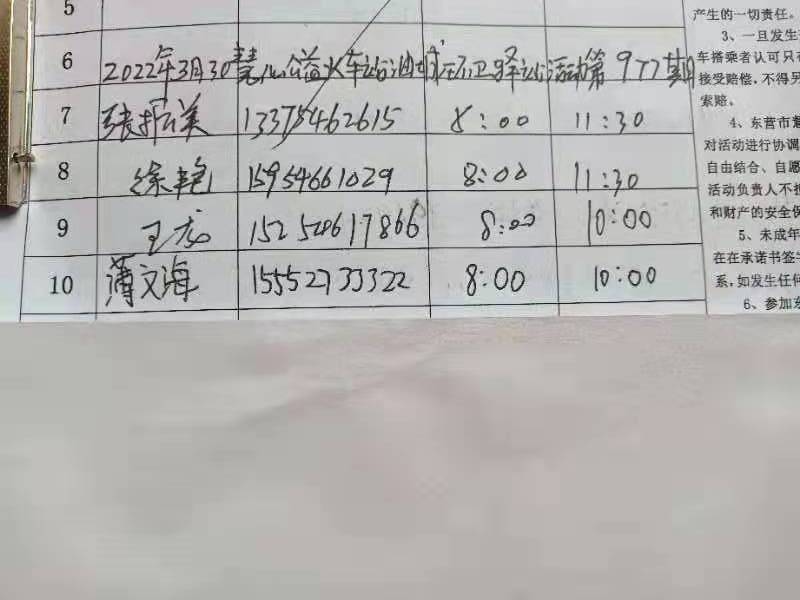 5
6 2022年3月30慧心公益火车站油城环卫驿站活动第977期
7 张振美 13375462615 8:00 11:30
8 徐艳 15954661029 8:00 11:30
9 王龙 8:00 10:00
10 薄文海 15552733322 8:00 10:00
产生的一切责任。
3、一旦发生
车搭乘者认可只
接受赔偿，不得另
索赔。
4、东营市
对活动进行协调
自由结合、自愿
活动负责人不
和财产的安全
5、未成年
在在承诺书签
系，如发生任何
6、参加东